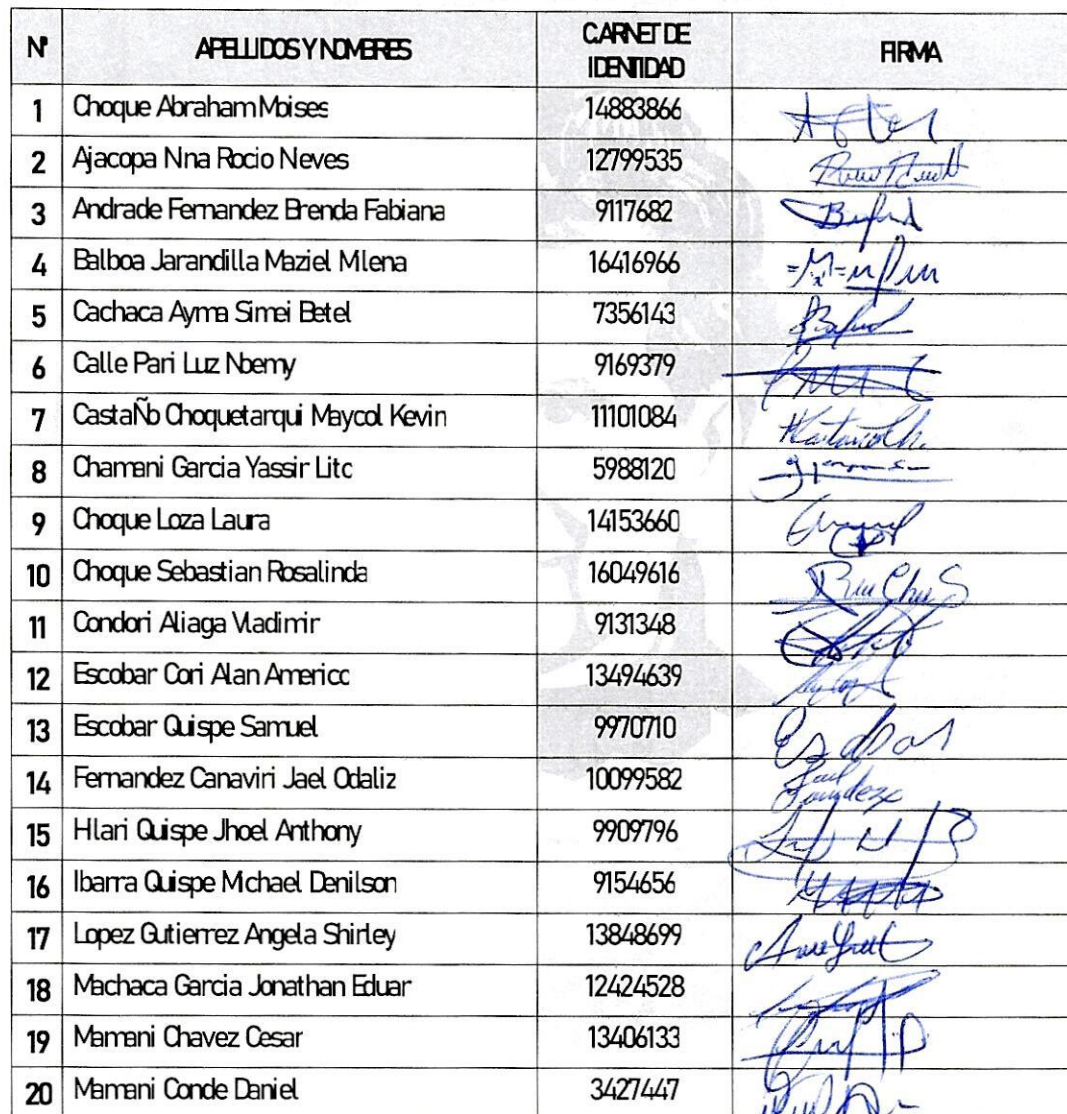 N° APELLIDOS Y NOMBRES CARNET DE IDENTIDAD FIRMA
1 Choque Abraham Moises 14883866
2 Ajacopa Nina Rocio Nieves 12799535
3 Andrade Fernandez Brenda Fabiana 9117682
4 Balboa Jarandilla Maziel Milena 16416966
5 Cachaca Ayma Simei Betel 7356143
6 Calle Pari Luz Noemy 9169379
7 CastaÑo Choquetarqui Maycol Kevin 11101084
8 Chamani Garcia Yassir Lito 5988120
9 Choque Loza Laura 14153660
10 Choque Sebastian Rosalinda 16049616
11 Condori Aliaga Vladimir 9131348
12 Escobar Cori Alan Americo 13494639
13 Escobar Quispe Samuel 9970710
14 Fernandez Canaviri Jael Odaliz 10099582
15 Hilari Quispe Jhoel Anthony 9909796
16 Ibarra Quispe Michael Denilson 9154656
17 Lopez Gutierrez Angela Shirley 13848699
18 Machaca Garcia Jonathan Eduar 12424528
19 Mamani Chavez Cesar 13406133
20 Mamani Conde Daniel 3427447